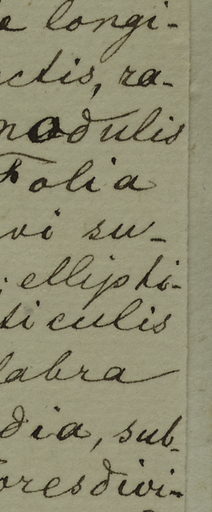 e longi-
ctis, ra-
nodulis
Folia
vi su-
; ellipti-
ticulis
labra
dia, sub-
ores divi-